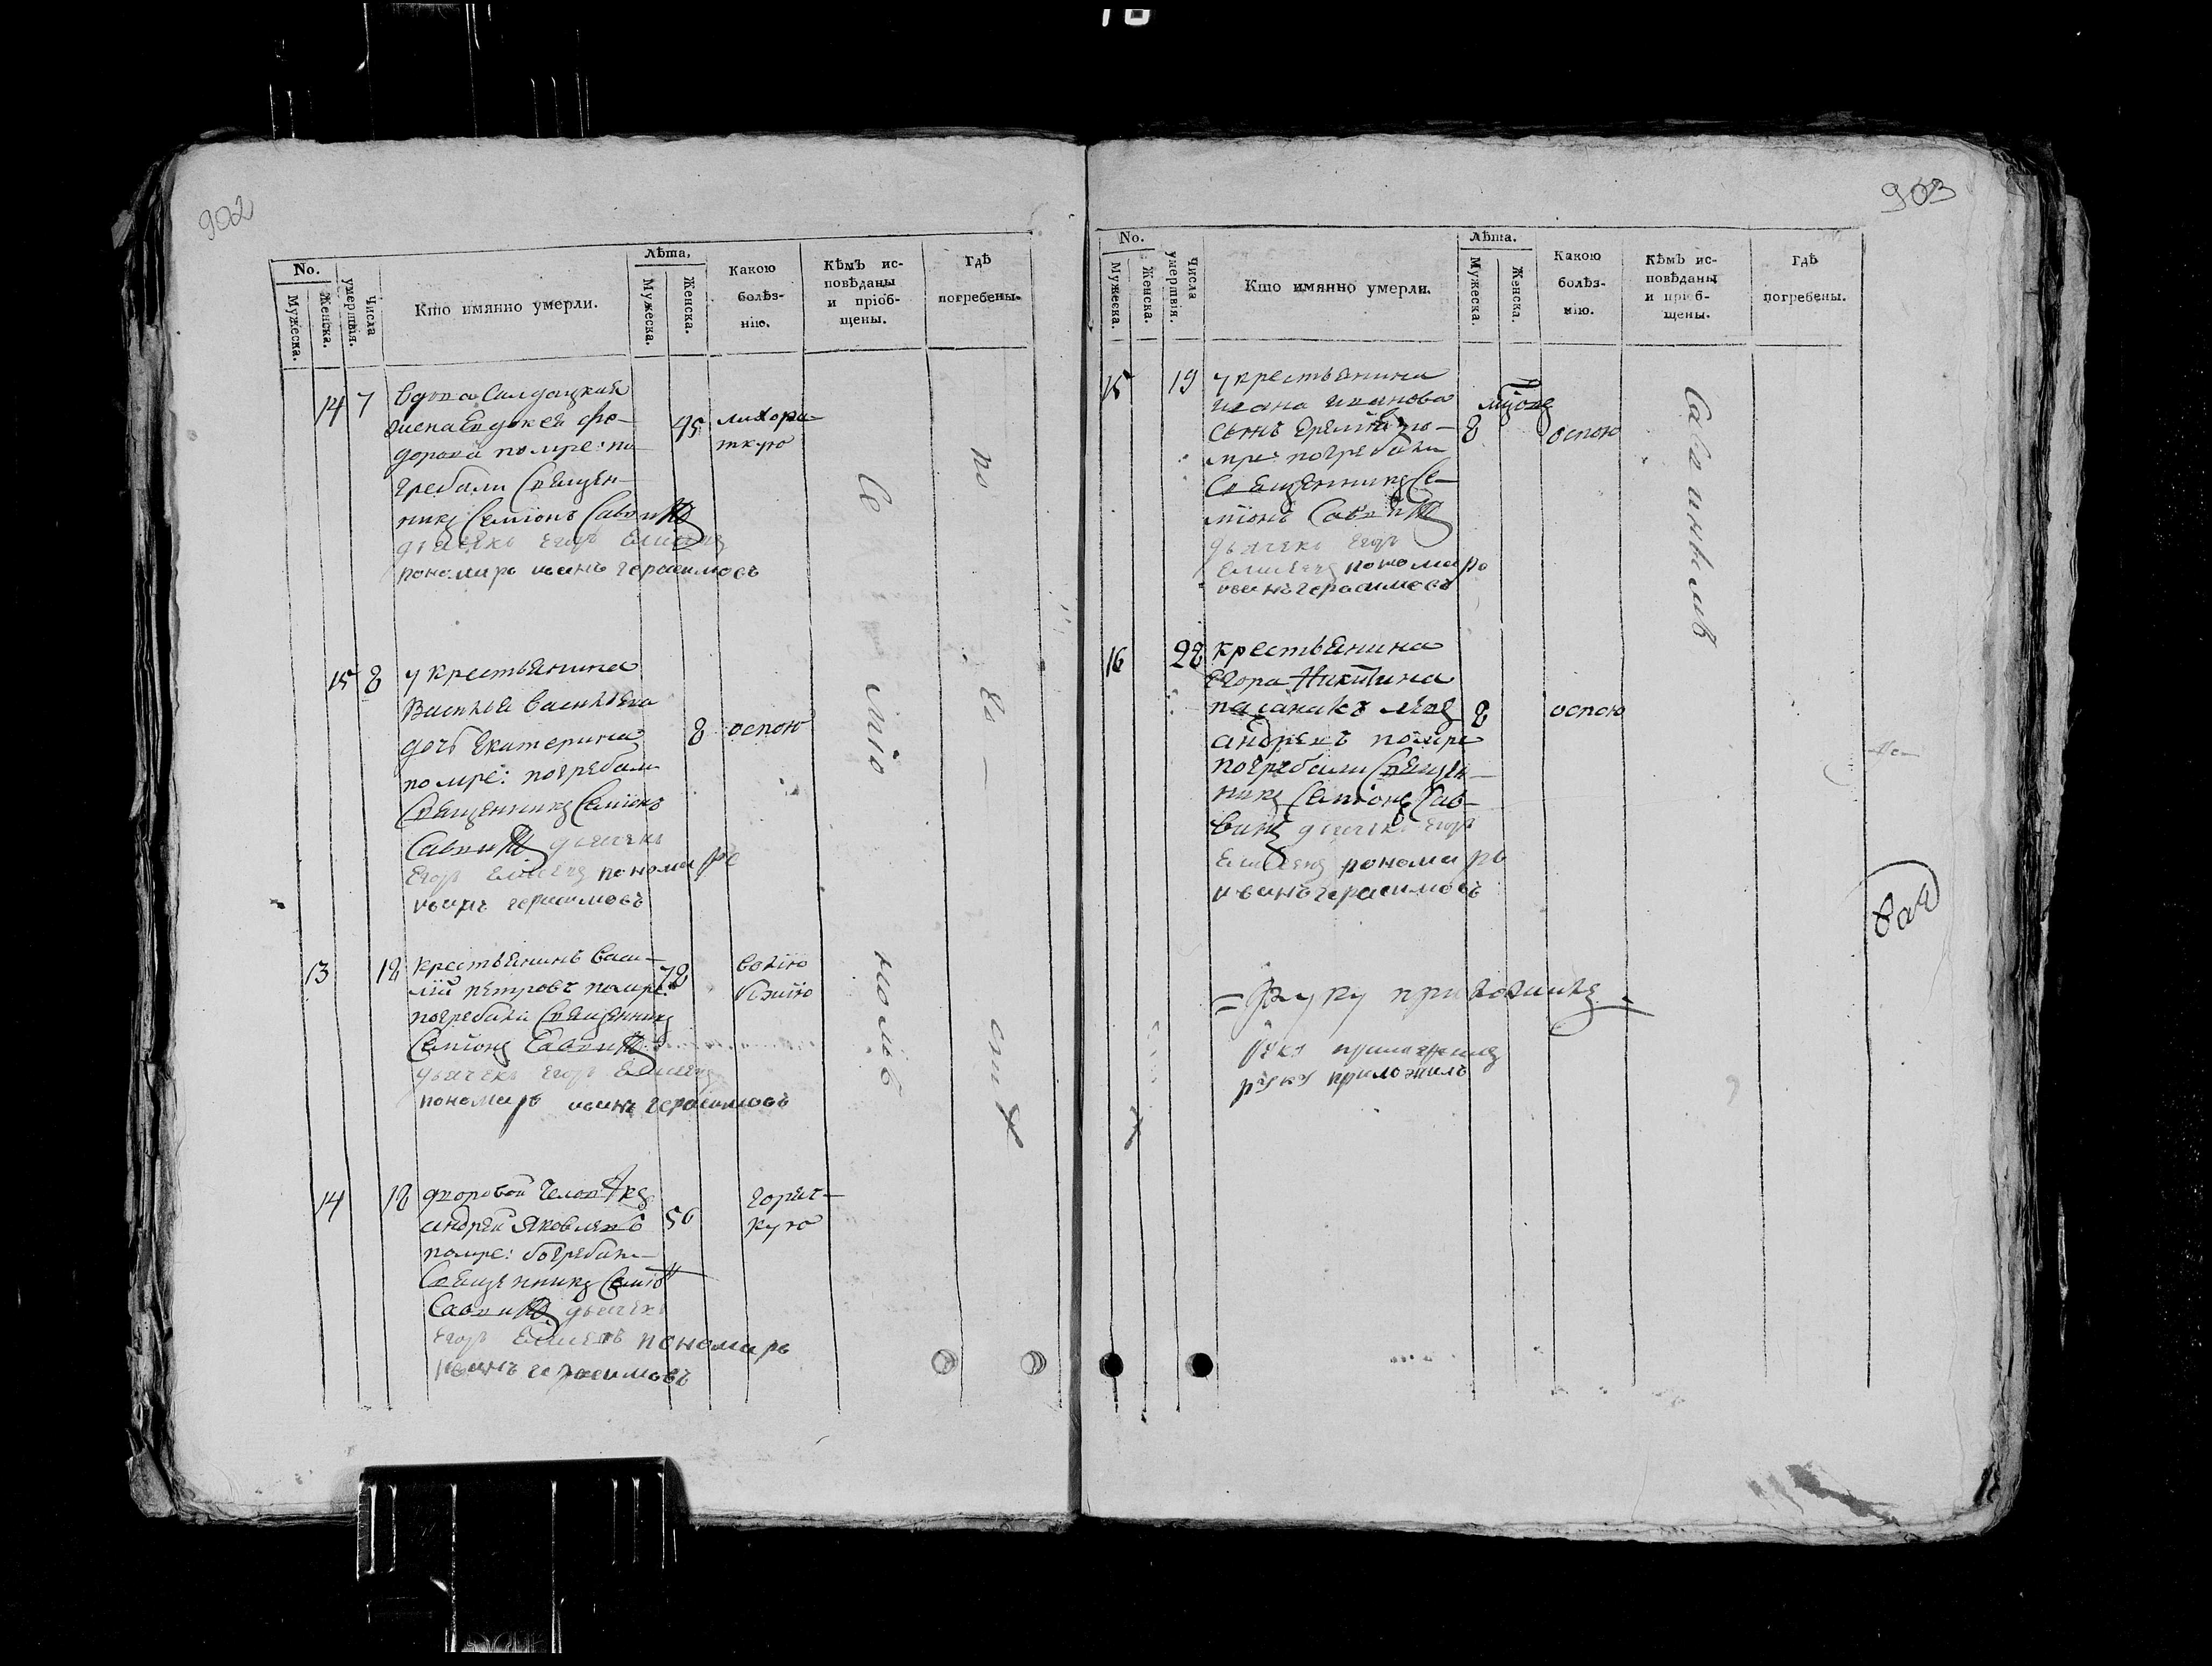 902
No.
Мужеска.
Женска.
Числа умертвія.
Кто имянно умерли.
Лѣта.
Мужеска.
Женска.
Какою болѣз-
нію.
Кѣмъ ис-
повѣданы
и пріоб-
щены.
Гдѣ
погребены.
14 7 вдова Салдацкая
жена Евдокея Фе-
дорова помре: по-
гребали Священ-
никъ Семіонъ Саввинъ
дьячекъ Егоръ Елисеевъ
пономарь иванъ герасимовъ
45 лихора-
ткую
15 8 у крестьянина
Василья Васильева
дочь Екатерина
помре: погребали
Священникъ Семіонъ
Саввинъ дьячекъ
Егоръ Елисеевъ пономарь
иванъ герасимовъ
8 оспою
13 18 крестьянинъ Васи-
лій петровъ помре:
погребали Священникъ
Семіонъ Саввинъ
дьячекъ Егоръ Елисеевъ
пономарь иванъ герасимовъ
78
14 18 дворовой человѣкъ
андрей Яковлевъ
помре: погребали
Священникъ Семіонъ
Саввинъ дьячекъ
Егоръ Елисеевъ пономарь
иванъ герасимовъ
56 горяч-
кую
903
No.
Мужеска.
Женска.
Числа умертвія.
Кто имянно умерли.
Лѣта.
Мужеска.
Женска.
Какою
болѣз-
нію.
Кѣмъ ис-
повѣданы
и пріоб-
щены.
Гдѣ
погребены.
15 19 у крестьянина
ивана иванова
сынъ Еремѣй по-
мре: погребали
Священникъ Се-
міонъ Саввинъ
дьячекъ Егоръ
Елисеевъ пономарь
иванъ герасимовъ
8 оспою
16 28 крестьянина
Егора Никитина
андреевъ помре
погребали Священ-
никъ Семіонъ Сав-
винъ дьячекъ Егоръ
Елисеевъ пономарь
иванъ герасимовъ
8 оспою
Руку приложилъ
руку приложилъ
руку приложилъ